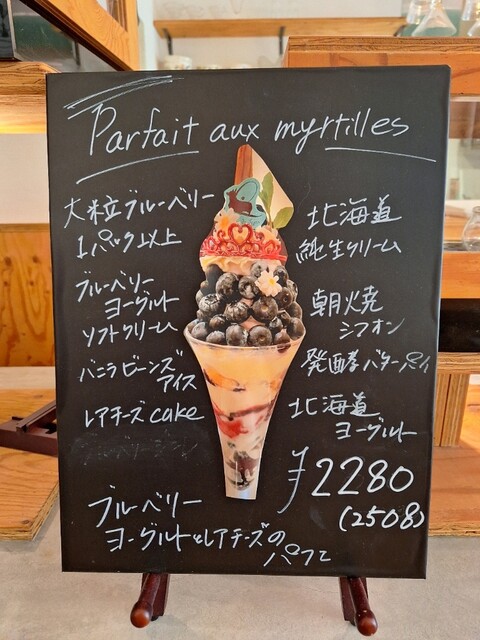 Parfait aux myrtilles
大粒ブルーベリー
1パック以上
ブルーベリー
ヨーグルト
ソフトクリーム
バニラビーンズ
アイス
レアチーズcake
北海道
純生クリーム
朝焼
シフォン
発酵バターパイ
北海道
ヨーグルト
¥2280
(2508)
ブルーベリー
ヨーグルトとレアチーズの
パフェ